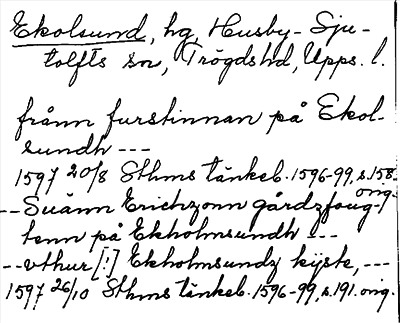 Ekolsund, hg, Husby-Sju-
tolfts sn, Trögds hd, Upps. l.
frånn furstinnan på Ekol-
sundh ---
1597 20/8 Sthms tänkeb. 1596-99, s. 158. orig.
-- Suänn Erichzonn gårdzfoug-
tenn på Ekholmsundh ---
-- vthur [:] Ekholmsundz kijste, ---
1597 26/10 Sthms tänkeb. 1596-99, s. 191. orig.